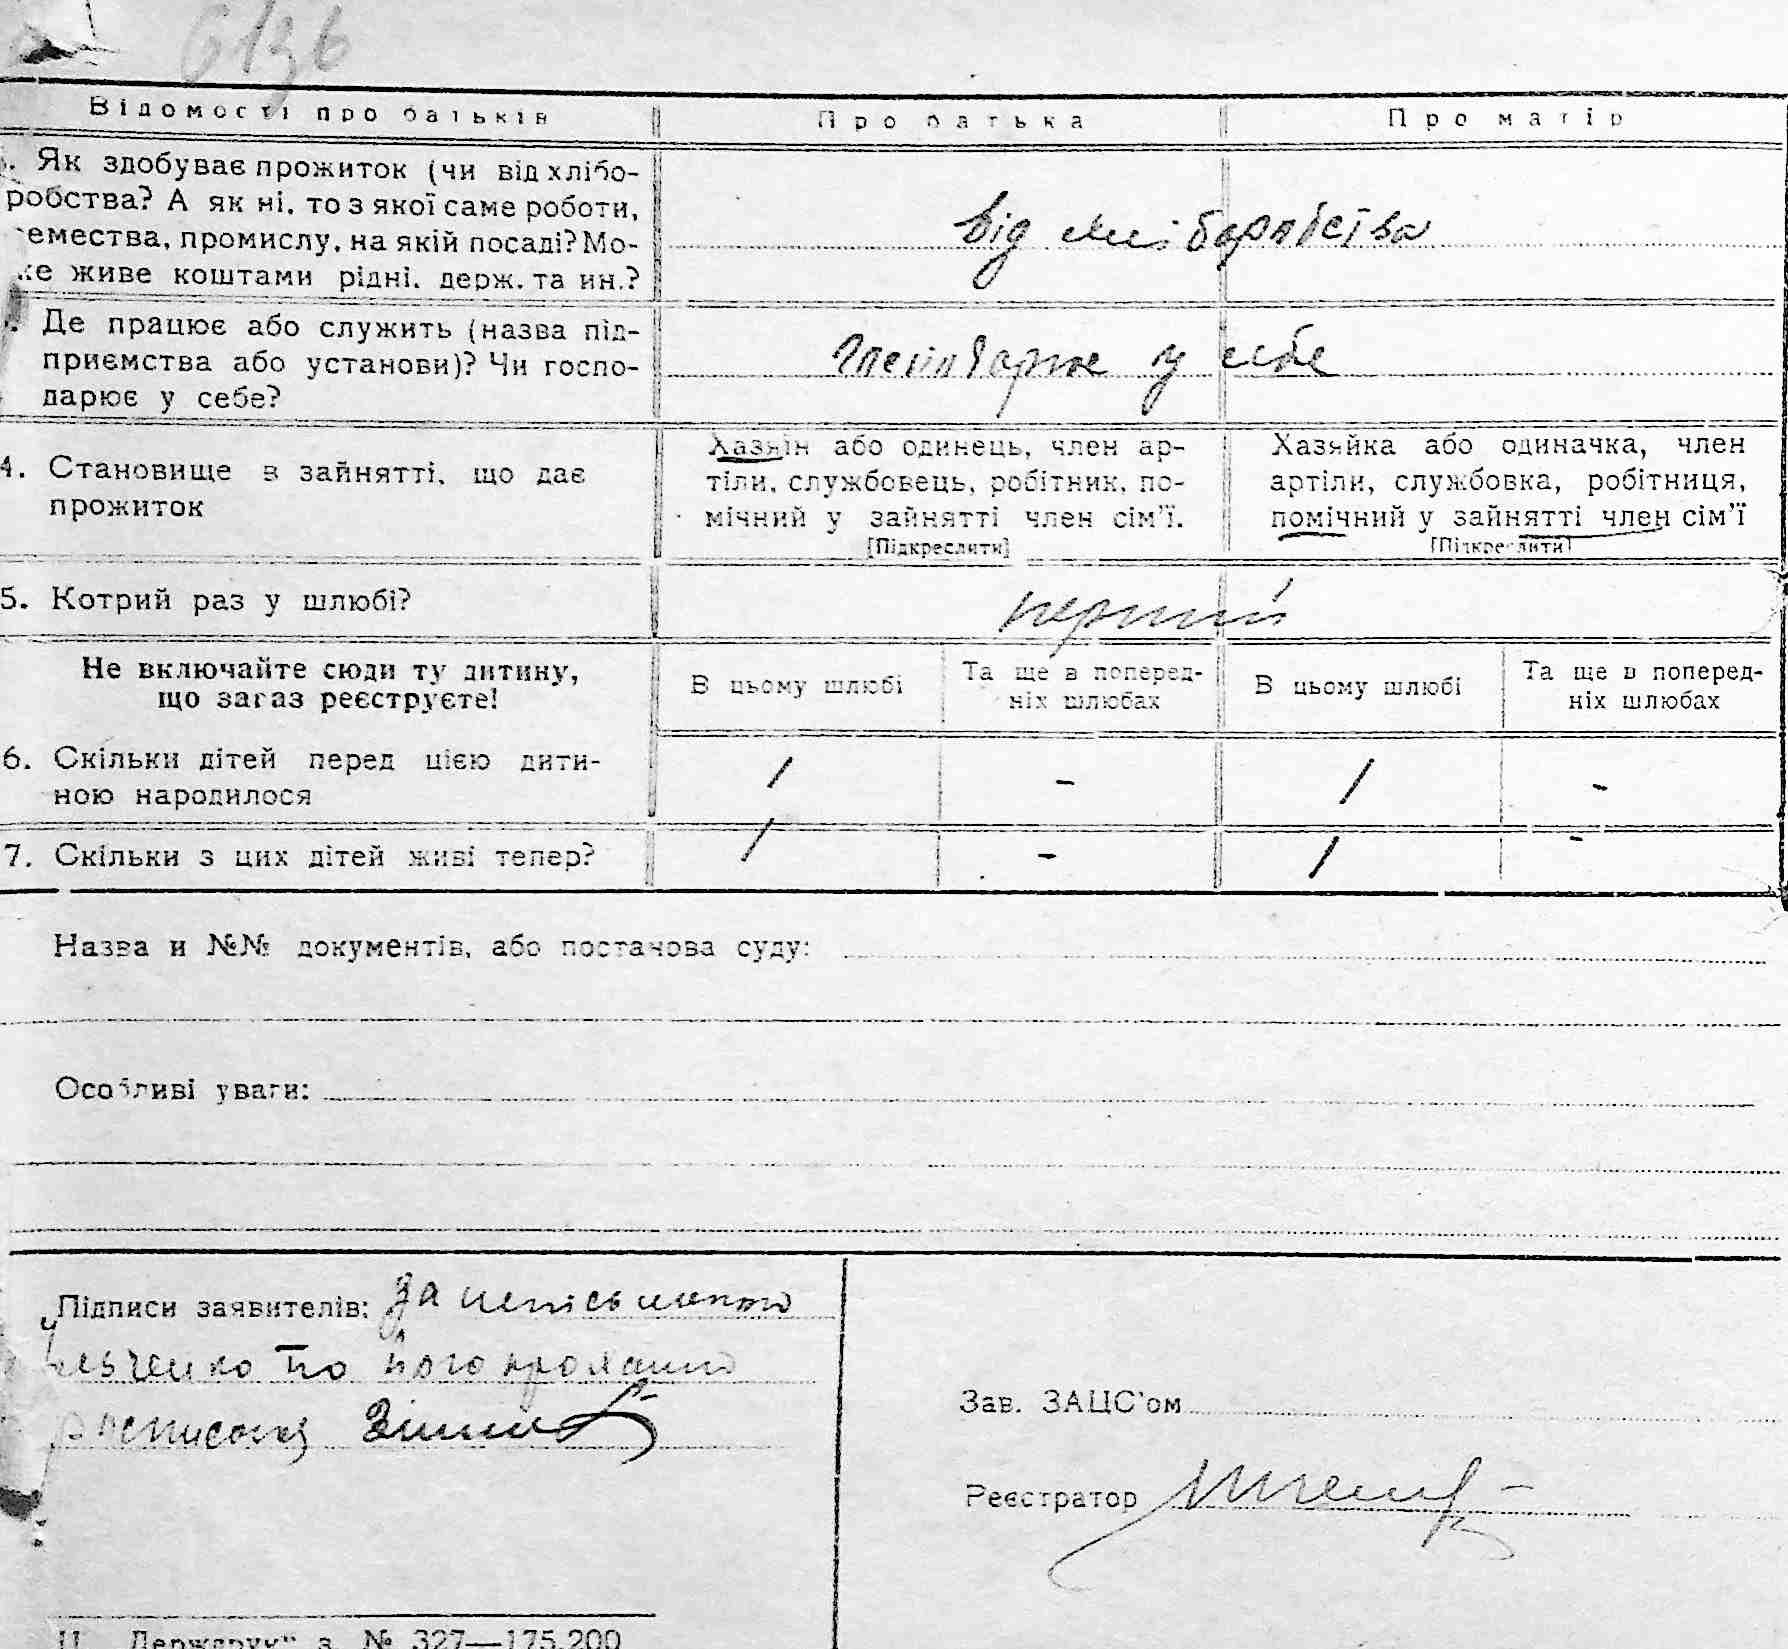 6136
Відомості про батьків
Про батька
Про матір
Як здобуває прожиток (чи від хлібо-
робства? А як ні, то з якої саме роботи,
емества, промислу, на якій посаді? Мо-
же живе коштами рідні, держ. та ин.?
від хліборобства
Де працює або служить (назва під-
приємства або установи)? Чи госпо-
дарює у себе?
господарює у себе
4. Становище в зайнятті, що дає
прожиток
Хазяїн або одинець, член ар-
тіли, службовець, робітник, по-
мічний у зайнятті член сім'ї.
[Підкреслити]
Хазяйка або одиначка, член
артіли, службовка, робітниця,
помічний у зайнятті член сім'ї
[Підкреслити]
5. Котрий раз у шлюбі?
перший
Не включайте сюди ту дитину,
що зараз реєструєте!
В цьому шлюбі
Та ще в поперед-
ніх шлюбах
В цьому шлюбі
Та ще в поперед-
ніх шлюбах
6. Скільки дітей перед цією дити-
ною народилося
1 - 1 -
7. Скільки з цих дітей живі тепер?
1 - 1 -
Назва и №№ документів, або постанова суду:
Особливі уваги:
Підписи заявителів: За неписьменного
по його проханню
росписався
Зав. ЗАЦС'ом
Реєстратор
Ц. „Держдрук" з. № 327—175.200